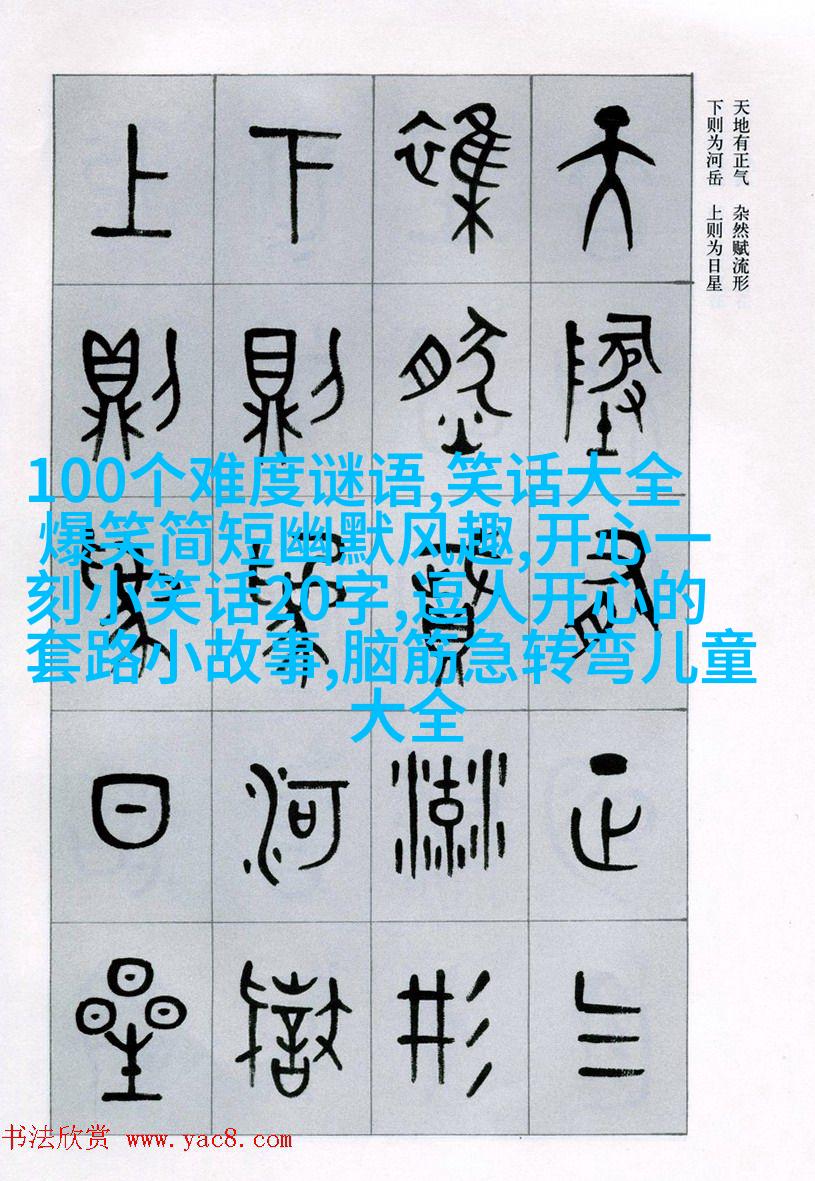 天地有正气　杂然赋流形
下则为河岳　上则为日星
天地有正气
雜然賦流形
下則為河嶽
上則為日星
100个难度谜语,笑话大全
爆笑简短幽默风趣,开心一
刻小笑话20字,逗人开心的
套路小故事,脑筋急转弯儿童
大全
书法欣赏 www.yac8.com